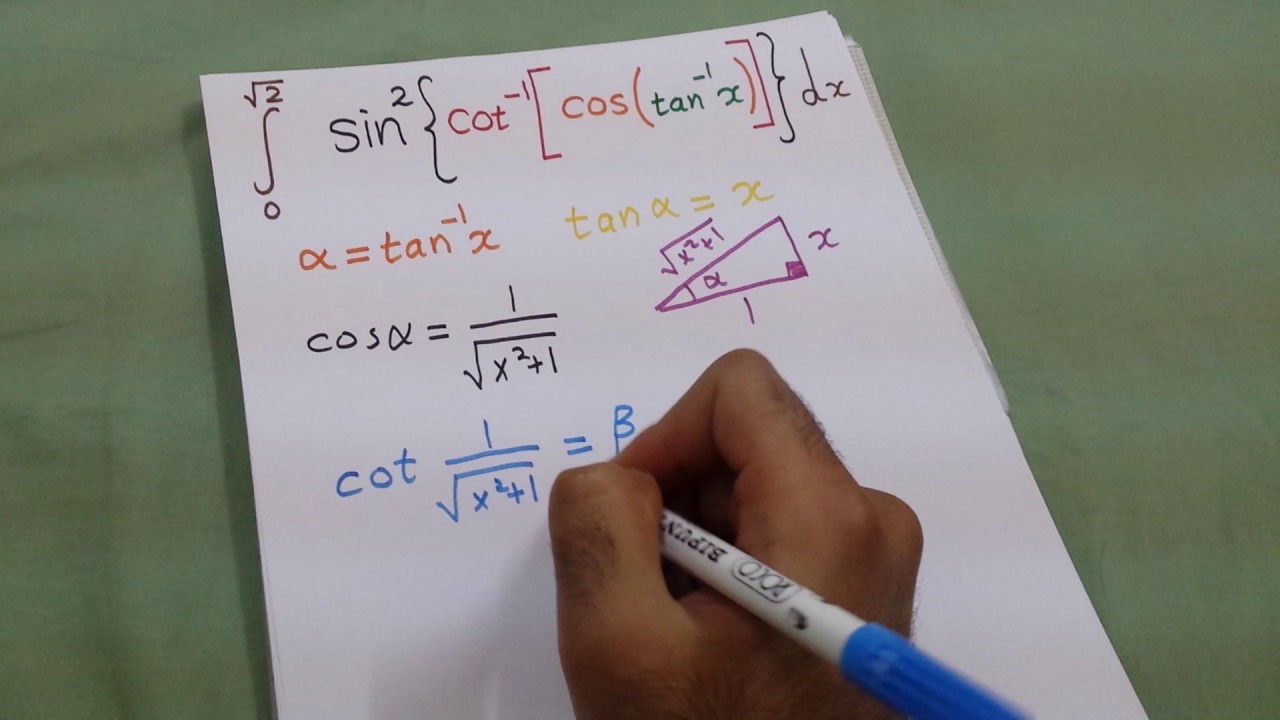 √2
∫ sin²{cot⁻¹[cos(tan⁻¹x)]}dx
0
α = tan⁻¹x tanα = x
√x²+1 x
α
1
cosα = 1/√x²+1
cot 1/√x²+1 = β
YOKO